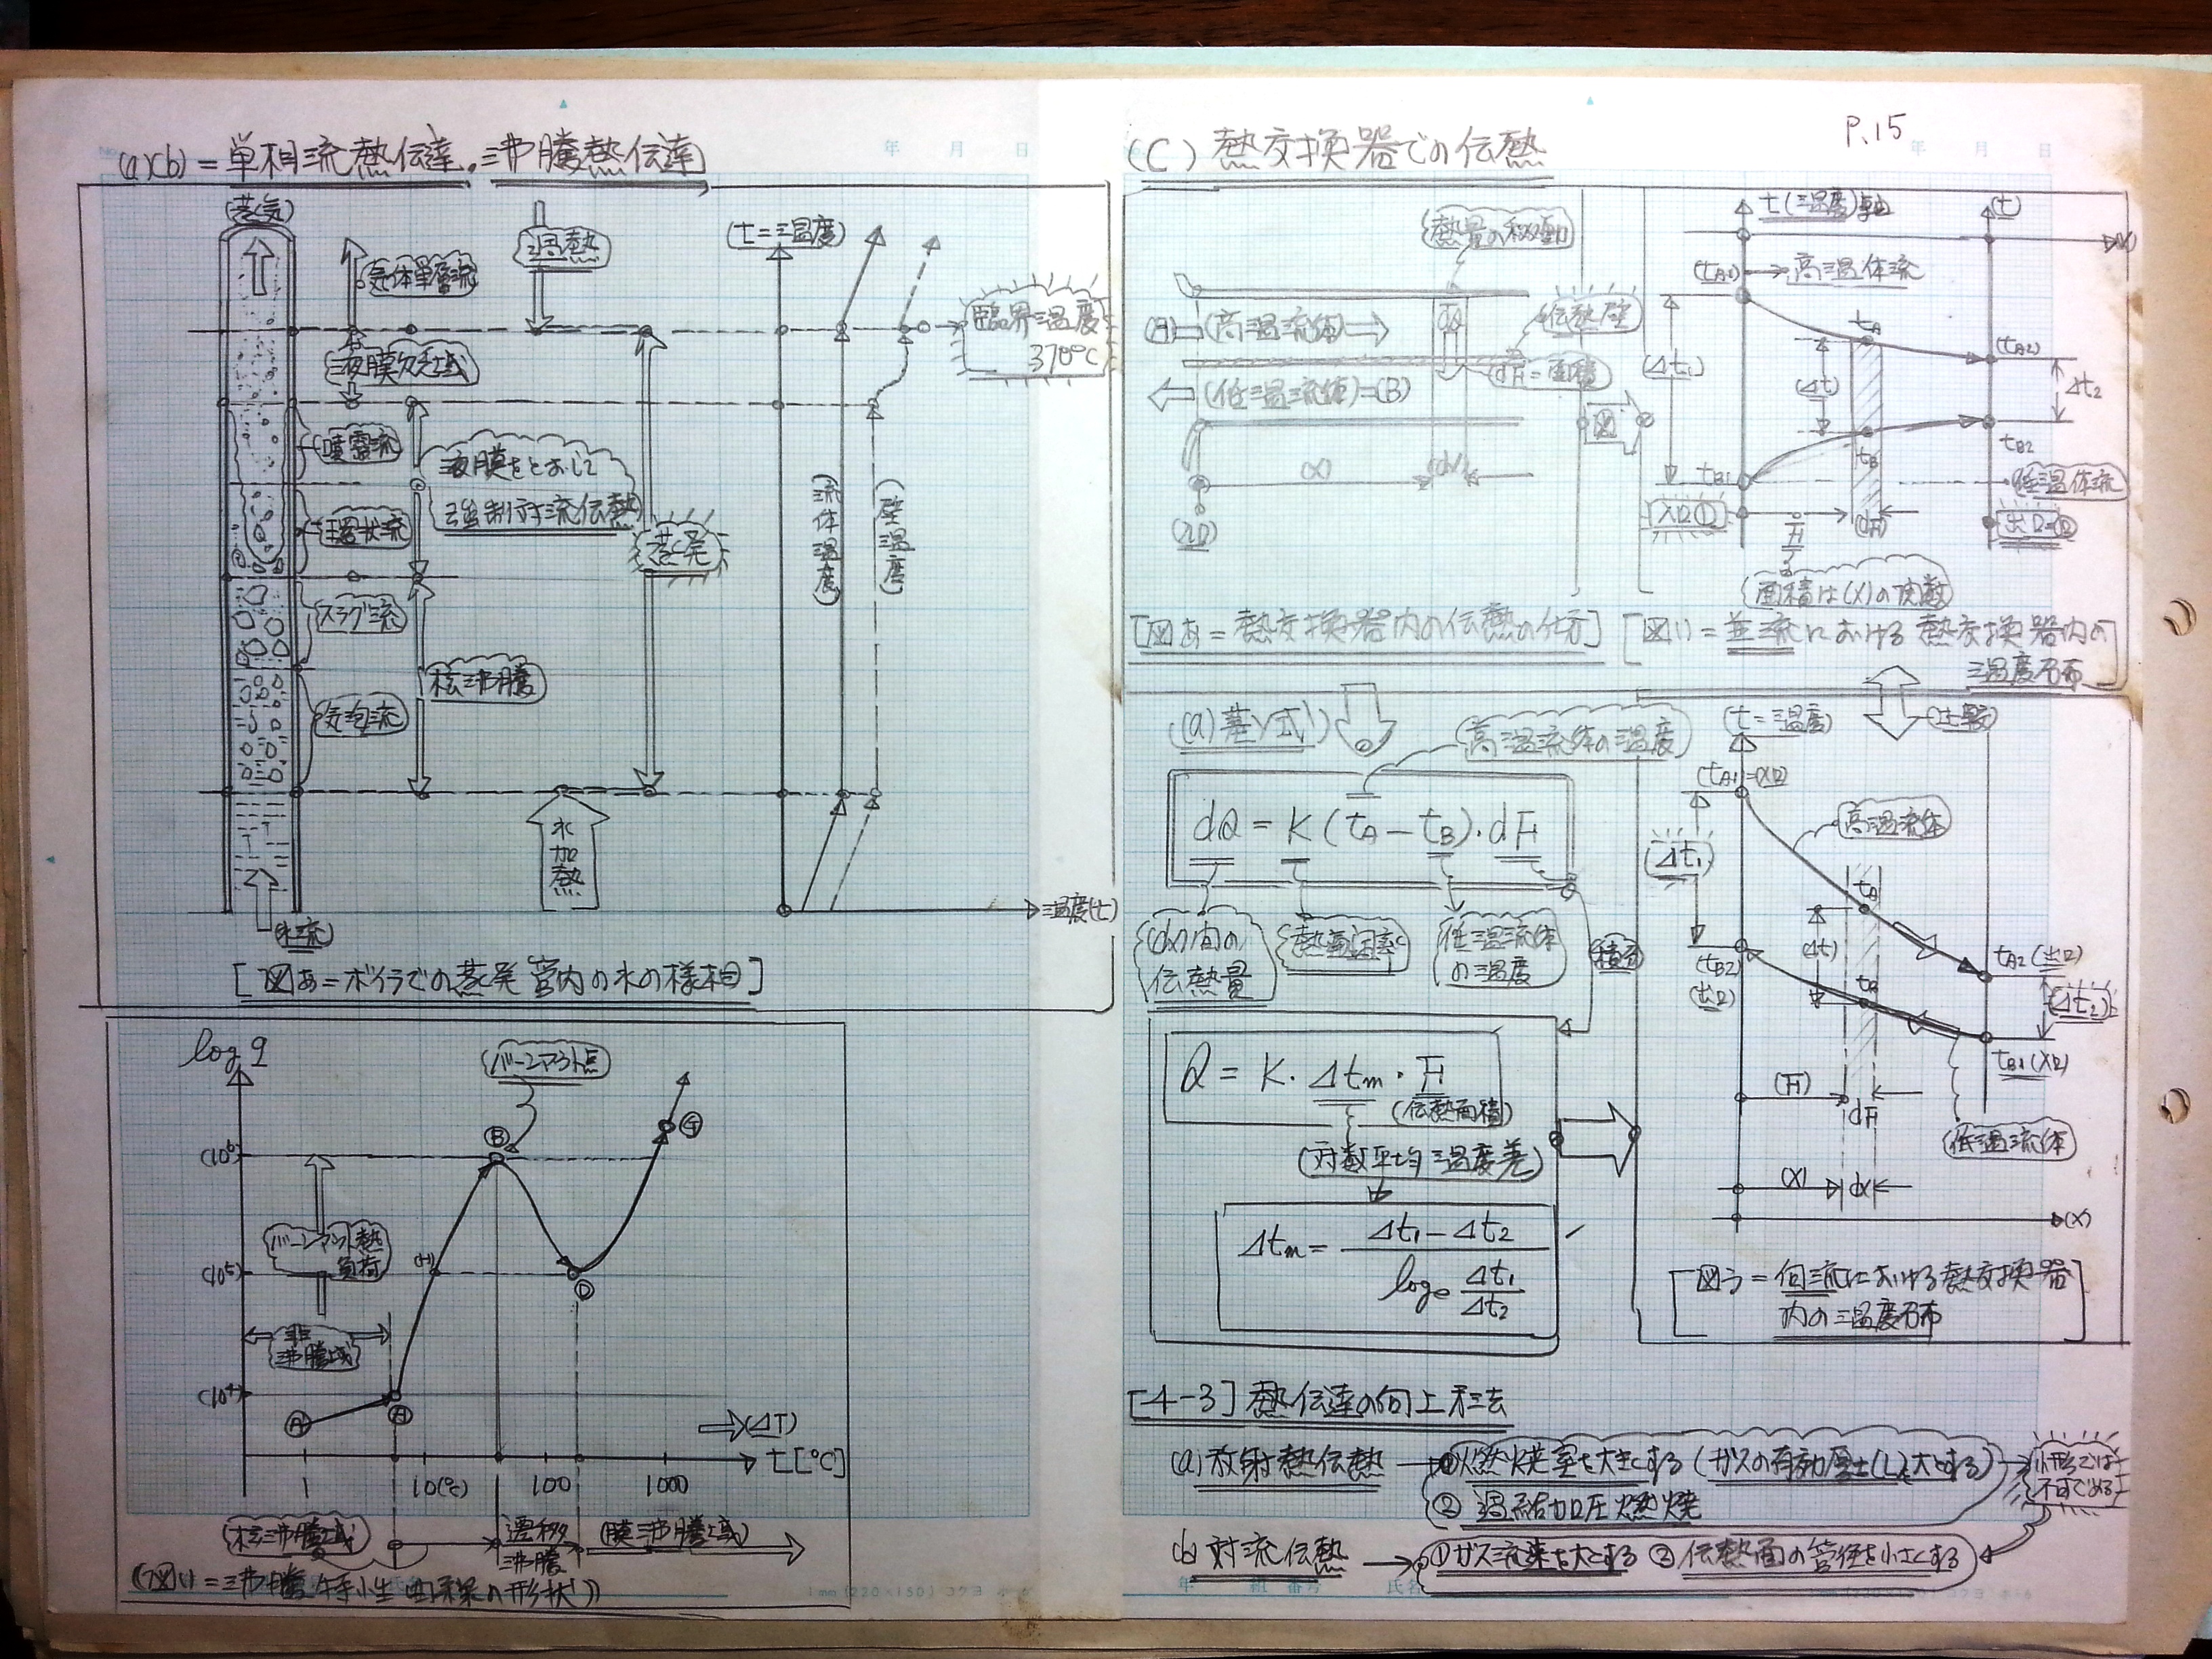 (a)(b)=単相流熱伝達。沸騰熱伝達
(蒸気)
気体単層流
過熱
液膜欠乏域
噴霧流
環状流
スラグ流
気泡流
液膜をとおして
強制対流伝熱
核沸騰
蒸発
水加熱
(水流)
(t=温度)
(流体温度)
(壁温度)
臨界温度
370℃
温度(t)
[図あ=ボイラでの蒸発管内の水の様相]
log q
バーンアウト点
(10⁶)
(10⁵)
(10⁴)
バーンアウト熱
負荷
非
沸騰域
A
H
B
D
G
(ΔT)
t[℃]
1
10(℃)
100
1000
(核沸騰域)
遷移
沸騰
(膜沸騰域)
(図い=沸騰特性曲線の形状)
P.15
年 月 日
(C) 熱交換器での伝熱
熱量の移動
(A)
(高温流体)
dQ
伝熱壁
dF=面積
(低温流体)=(B)
(x)
(dx)
(入口)
図
[図あ=熱交換器内の伝熱の仕方]
t(温度)軸
(t)
(x)
(tA1)
高温体流
tA
(tA2)
(Δt1)
(Δt)
Δt2
tB
tB2
tB1
低温体流
入口①
F
(dF)
出口=②
面積は(x)の関数
[図い=並流における熱交換器内の
温度分布]
(a)基い式
高温流体の温度
dQ = K(tA−tB)・dF
(dx)間の
伝熱量
熱貫流率
低温流体
の温度
積分
Q = K・Δtm・F
(伝熱面積)
(対数平均温度差)
Δtm = Δt1−Δt2
loge Δt1
Δt2
(t=温度)
(比較)
(tA1)=入口
高温流体
(Δt1)
tA
(Δt)
(tB2)
(出口)
tB
tA2(出口)
(Δt2)
tB1(入口)
(F)
dF
低温流体
(x)
dx
(x)
[図う=向流における熱交換器
内の温度分布]
[4-3]熱伝達の向上方法
(a)放射熱伝熱
①燃焼室を大きくする(ガスの有効厚士(L)を大とする)
②過給加圧燃焼
小形では
不可である
(b)対流伝熱
①ガス流速を大とする ②伝熱面の管径を小さくする